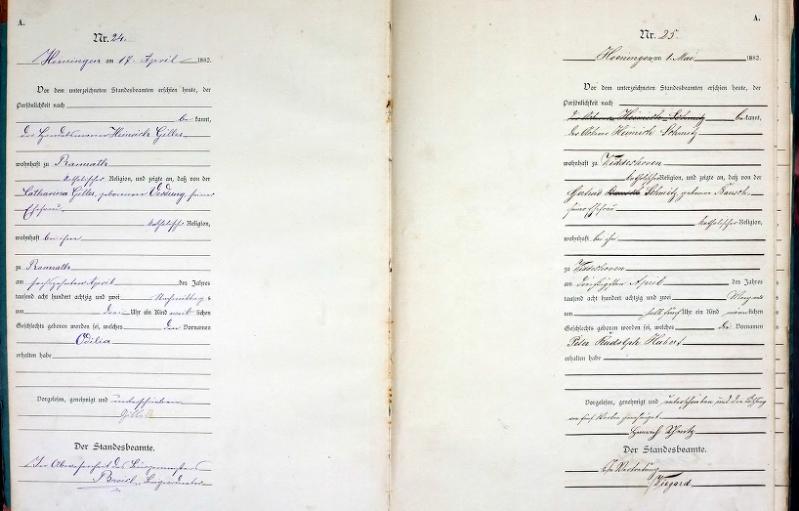 A.
Nr. 24.
Hoeningen am 17. April 1882.
Vor dem unterzeichneten Standesbeamten erschien heute, der
Persönlichkeit nach
be kannt,
Heinrich Gilles
wohnhaft zu Ramrath
katholischer Religion, und zeigte an, daß von der
Catharina Gilles, geborenen seiner
Ehefrau
katholischer Religion,
wohnhaft bei ihm
zu Ramrath
am sechszehnten April des Jahres
tausend acht hundert achtzig und zwei Nachmittags
um drei Uhr ein Kind weib lichen
Geschlechts geboren worden sei, welches den Vornamen
Odilia
erhalten habe
Vorgelesen, genehmigt und unterschrieben
Gilles
Der Standesbeamte.
In Abwesenheit des Bürgermeisters
A.
Nr. 25.
Hoeningen am 1. Mai 1882.
Vor dem unterzeichneten Standesbeamten erschien heute, der
Persönlichkeit nach
be kannt,
der Ackerer Heinrich Schmitz
wohnhaft zu Widdeshoven
katholischer Religion, und zeigte an, daß von der
Gertrud Schmitz, geborenen Rausch
seiner Ehefrau
katholischer Religion,
wohnhaft bei ihm
zu Widdeshoven
am dreißigsten April des Jahres
tausend acht hundert achtzig und zwei Morgens
um halb fünf Uhr ein Kind männ lichen
Geschlechts geboren worden sei, welches die Vornamen
Peter Rudolph Hubert
erhalten habe
Vorgelesen, genehmigt und unterschrieben und
Heinrich Schmitz
Der Standesbeamte.
In Vertretung